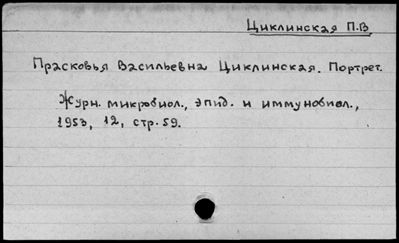 Циклинская П.В.
Прасковья Васильевна Циклинская. Портрет.
Журн. микробиол., эпид. и иммунобиол.,
1953, 12, стр. 59.